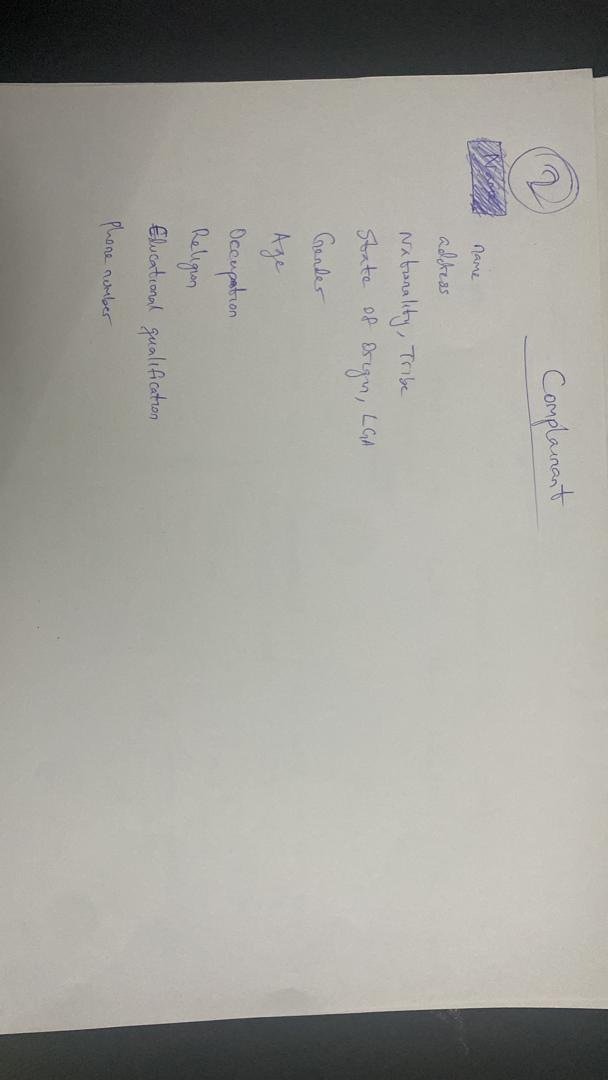 2
Complainant
name
address
Nationality, Tribe
State of Origin, LGA
Gender
Age
Occupation
Religion
Educational qualification
phone number